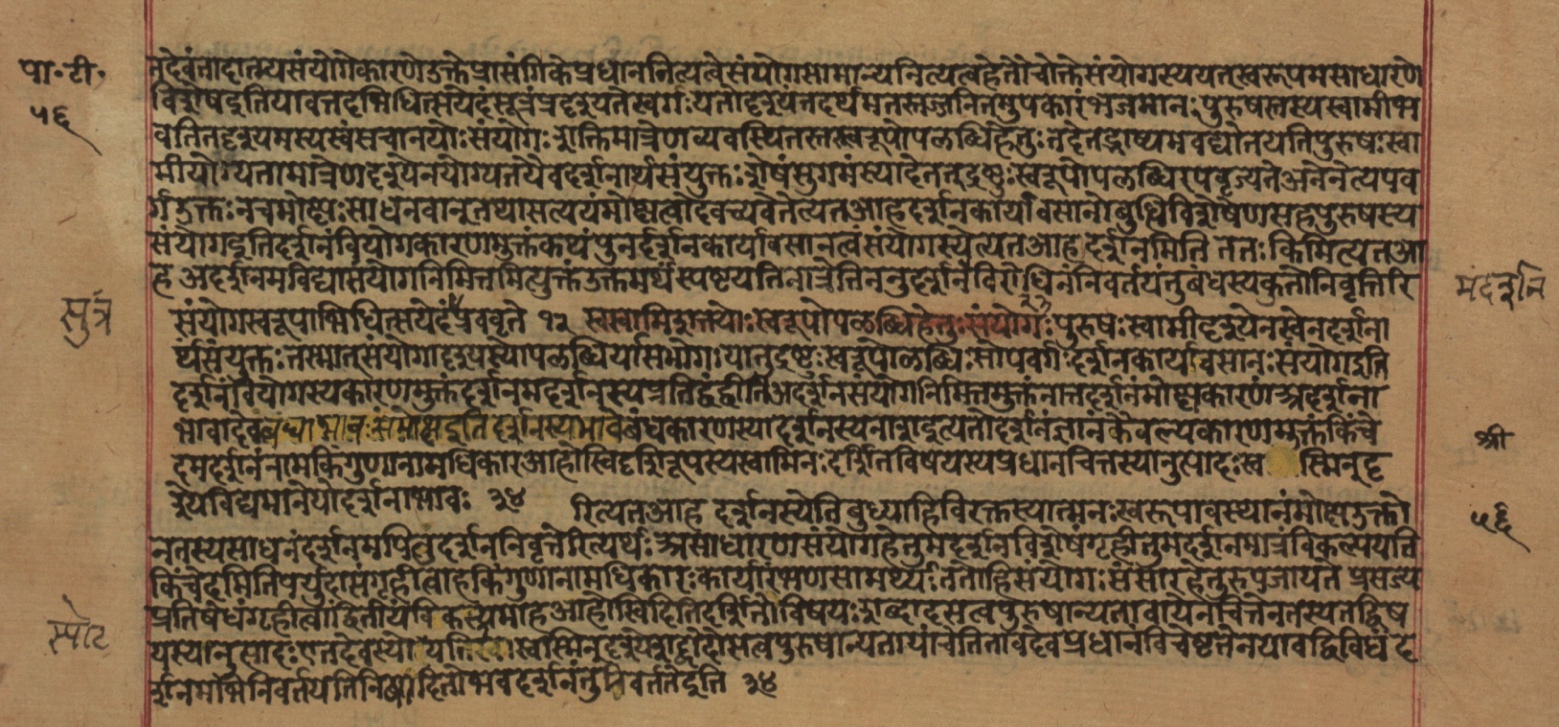 पा॰टी॰
५६
तदेवंतादात्म्यसंयोगेकारणेउक्तेप्रासंगिकेप्रधाननित्यत्वेसंयोगसामान्यनित्यत्वहेतौचोक्तेसंयोगस्ययत्स्वरूपमसाधारणे
विशेषइतियावत्तदभिधित्सयेदंसूत्रंप्रववृतेयतोदृश्यंतदर्थमतस्तज्जनितमुपकारंभजमानःपुरुषस्तस्यस्वामीभ
वतितदृश्यमस्यस्वंसचानयोःसंयोगःशक्तिमात्रेणव्यवस्थितस्तत्स्वरूपोपलब्धिहेतुःतदेतद्भाष्यमवद्योतयतिपुरुषःस्वा
मीयोग्यतामात्रेणदृश्येनयोग्यतयैवदर्शनार्थसंयुक्तःशेषंसुगमंस्यादेतत्द्रष्टुःस्वरूपोपलब्धिरपवृज्यतेअनेनेत्यपव
र्गउक्तःनचमोक्षःसाधनवान्तथासत्ययंमोक्षत्वादेवच्यवेतेत्यतआहदर्शनकार्यावसानोबुधिविशेषेणसहपुरुषस्य
संयोगइतिदर्शनंवियोगकारणमुक्तंकथंपुनर्दर्शनकार्यावसानत्वंसंयोगस्येत्यतआह दर्शनमिति ततःकिमित्यतआ
ह अदर्शनमविद्यासंयोगनिमित्तमित्युक्तंउक्तमर्थंस्पष्टयतिनात्रेतिननुदर्शनंविरोधिनंनिवर्तयंतुबंधस्यकुतोनिवृत्तिरि
सुत्रं
मंदर्शन
संयोगस्वरूपाभिधित्सयेदंप्रववृते १२ स्वस्वामिशक्त्योःस्वरूपोपलब्धिहेतुःसंयोगःपुरुषःस्वामीदृश्येनस्वेनदर्शना
र्थसंयुक्तःतस्मात्संयोगादृश्यस्योपलब्धिर्यासभोगःयातुद्रष्टुःस्वरूपोलब्धिःसोपवर्गःदर्शनकार्यावसानःसंयोगइति
दर्शनंवियोगस्यकारणमुक्तंदर्शनमदर्शनस्यप्रतिद्वंद्वीतिअदर्शनंसंयोगनिमित्तमुक्तंनात्रदर्शनंमोक्षकारणंअदर्शना
भावादेवबंधाभावःसमोक्षइति दर्शनस्यभावेबंधकारणस्यादर्शनस्यनाशइत्यतोदर्शनंज्ञानंकैवल्यकारणमुक्तंकिंचे
श्री
दमदर्शनंनामकिंगुणानामधिकारआहोस्विदृशिरूपस्यस्वामिनःदर्शितविषयस्यप्रधानचित्तस्यानुत्पादःस्व स्मिन्दृ
श्येविद्यमानेयोदर्शनाभावः ३४ रित्यतआह दर्शनस्येतिबुध्याहिविरक्तस्यात्मनःस्वरूपावस्थानंमोक्षउक्तो
५६
नतस्यसाधनंदर्शनमपितुदर्शननिवृत्तेरित्यर्थःअसाधारणसंयोगहेतुमदर्शनविशेषंगृहीतुमदर्शनमात्रंविकल्पयति
किंचेदमितिपर्युदासंगृहीत्वाहकिंगुणानामधिकारःकार्यारंभणसामर्थ्यंततोहिसंयोगःसंसारहेतुरुपजायते प्रसज्य
प्रतिषेधंगृहीत्वाद्वितीयंविकल्पमाहआहोस्विदितिदर्शितोविषयःशब्दादिसत्वपुरुषान्यतावायेनचित्तेनतस्यतद्विष
स्पोट
यस्यानुत्पादःएतदेवस्फोरयतिस्वस्मिन्दृश्येशब्दादौसत्वपुरुषान्यतायांचेतितावदेवप्रधानंविचेष्टतेनयावद्विविधं द
र्शनमभिनिवर्तयतिनिष्पादितोभयदर्शनंतुनिवर्ततेइति ३४